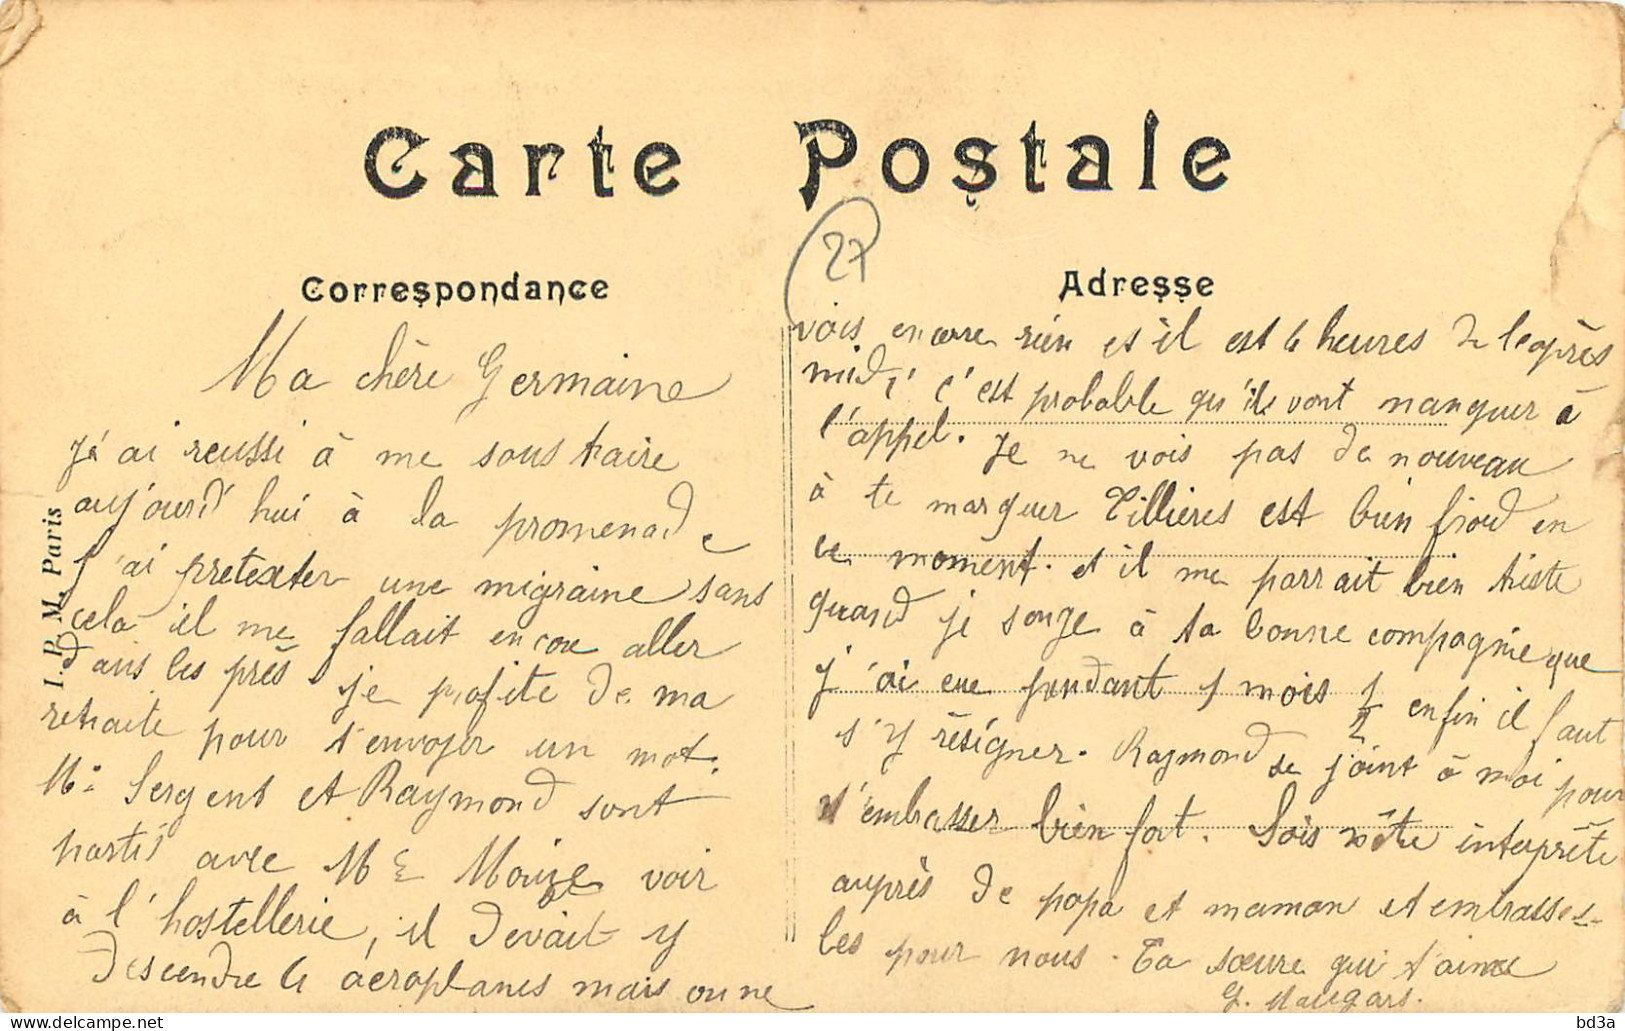 Carte Postale
27
Correspondance
Ma chère Germaine
J'ai reussi à me soustraire
aujourd'hui à la promenade
j'ai pretexter une migraine sans
cela il me fallait encore aller
dans les près. je profite de ma
retraite pour t'envoyer un mot.
Mr Sergent et Raymond sont
parti avec Me Moize voir
à l'hostellerie, il devait y
descendre 6 áeroplanes mais on ne
I. P. M. Paris
Adresse
vois encore rien et il est 6 heures de l'après
midi c'est probable qu'ils vont manquer à
l'appel. Je ne vois pas de nouveau
à te marquer Tillieres est bien froid en
ce moment. et il me parrait bien triste
quand je songe à ta bonne compagnie que
j'ai eue pendant 1 mois 1/2 enfin il faut
s'y résigner. Raymond se joint à moi pour
t'embrasser bien fort. Sois nôtre interprète
auprès de papa et maman et embrasses-
les pour nous. Ta sœure qui t'aime
G. Maugars.
bd3a